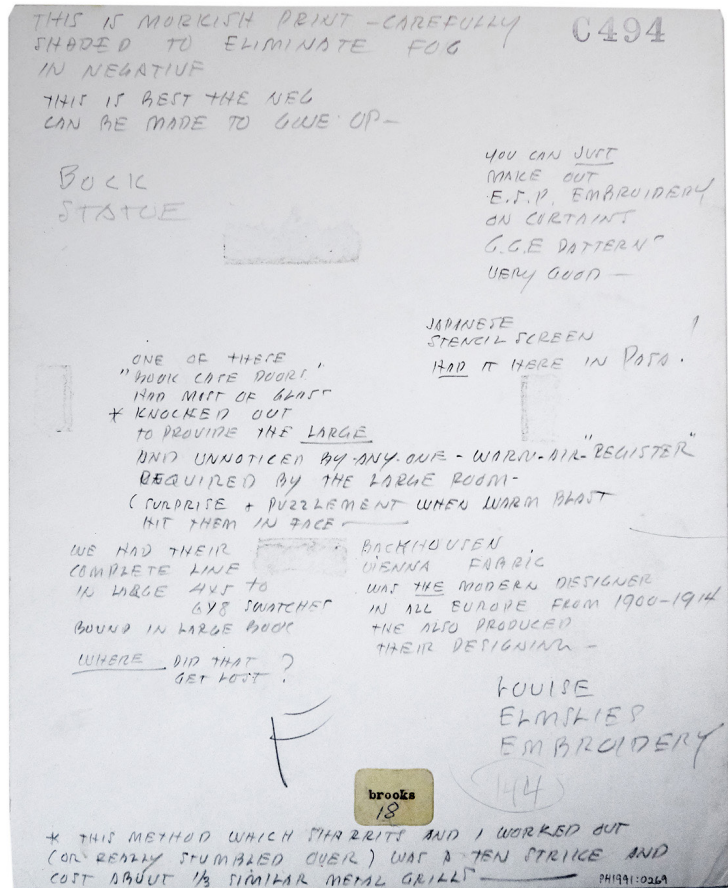 THIS IS MORKISH PRINT - CAREFULLY
SHADED TO ELIMINATE FOG
IN NEGATIVE
C494
THIS IS BEST THE NEG
CAN BE MADE TO GIVE UP -
BOCK
STATUE
YOU CAN JUST
MAKE OUT
E.S.P. EMBROIDERY
ON CURTAINS
G.G.E PATTERN"
VERY GOOD -
JAPANESE
STENCIL SCREEN
HAD IT HERE IN PASA. !
ONE OF THESE
"BOOK CASE DOORS"
HAD MOST OF GLASS
* KNOCKED OUT
TO PROVIDE THE LARGE
AND UNNOTICED BY-ANY-ONE - WARM-AIR-"REGISTER"
REQUIRED BY THE LARGE ROOM-
(SURPRISE + PUZZLEMENT WHEN WARM BLAST
HIT THEM IN FACE -
WE HAD THEIR
COMPLETE LINE
IN LARGE 4X5 TO
6X8 SWATCHES
BOUND IN LARGE BOOK
WHERE DID THAT
GET LOST ?
BACKHOUSEN
VIENNA FABRIC
WAS THE MODERN DESIGNER
IN ALL EUROPE FROM 1900-1914
THE ALSO PRODUCED
THEIR DESIGNING -
LOUISE
ELMSLIES
EMBROIDERY
F
144
brooks
18
* THIS METHOD WHICH STHARRITS AND I WORKED OUT
(OR REALLY STUMBLED OVER) WAS A TEN STRIKE AND
COST ABOUT 1/3 SIMILAR METAL GRILLS -
PH1991:0269